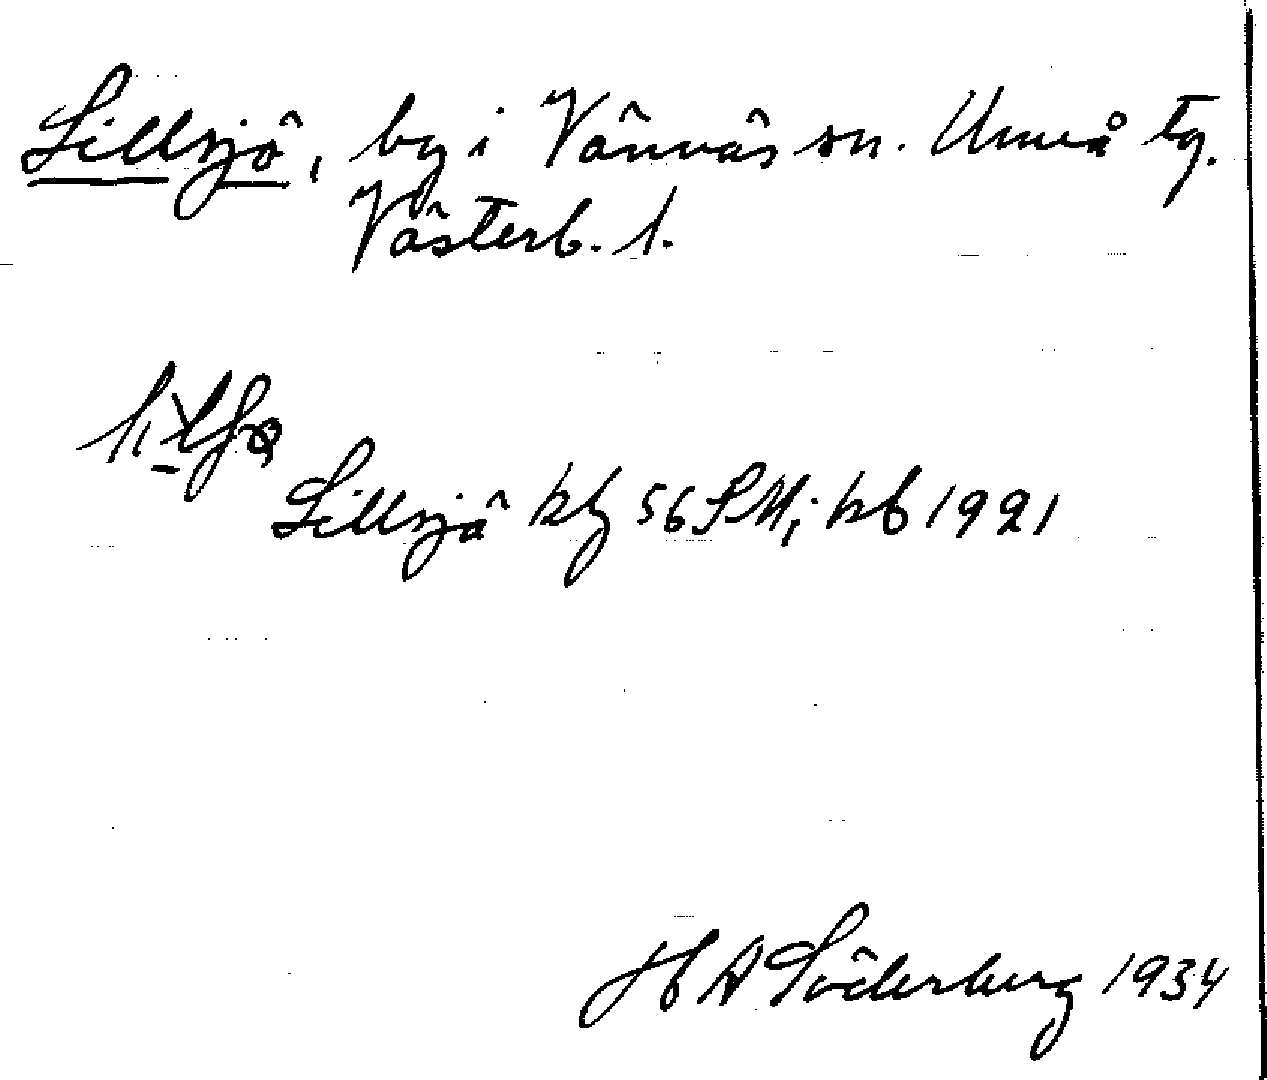 Lillsjö, by i Vännäs sn. Umeå tg.
Västerb. l.
Lillsjö kbg 56 SM; kb 1921
H A Söderberg 1934